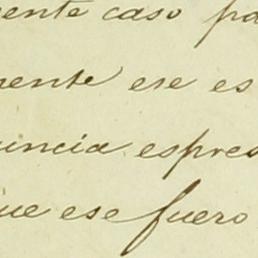 mente caso pa
mente ese es
uncia espres
que ese fuero